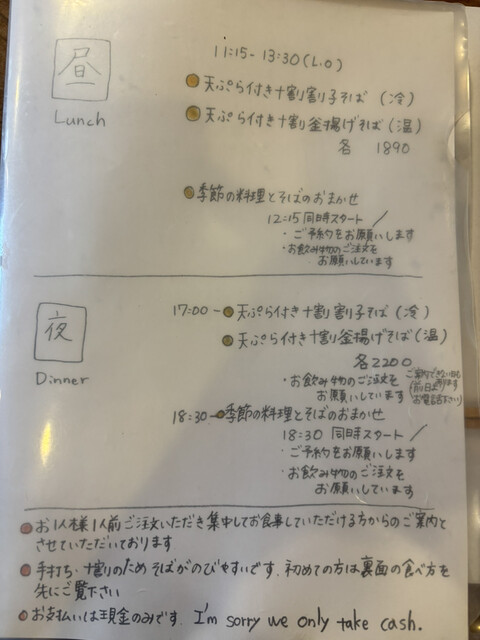 昼
Lunch
11:15 - 13:30 (L.O)
天ぷら付き十割割子そば (冷)
天ぷら付き十割釜揚げそば (温)
各 1890
季節の料理とそばのおまかせ
12:15 同時スタート
・ご予約をお願いします
・お飲み物のご注文を
お願いしています
夜
Dinner
17:00 ~ 天ぷら付き十割割子そば (冷)
天ぷら付き十割釜揚げそば (温)
各 2200
・お飲み物のご注文を
お願いしています
ご案内できない日も
あります
(前日までに
お電話下さい)
18:30 ~ 季節の料理とそばのおまかせ
18:30 同時スタート
・ご予約をお願いします
・お飲み物のご注文を
お願いしています
お1人様1人前ご注文いただき集中してお食事していただける方からのご案内と
させていただいております
手打ち・十割のためそばがのびやすいです。初めての方は裏面の食べ方を
先にご覧下さい
お支払いは現金のみです. I'm sorry we only take cash.